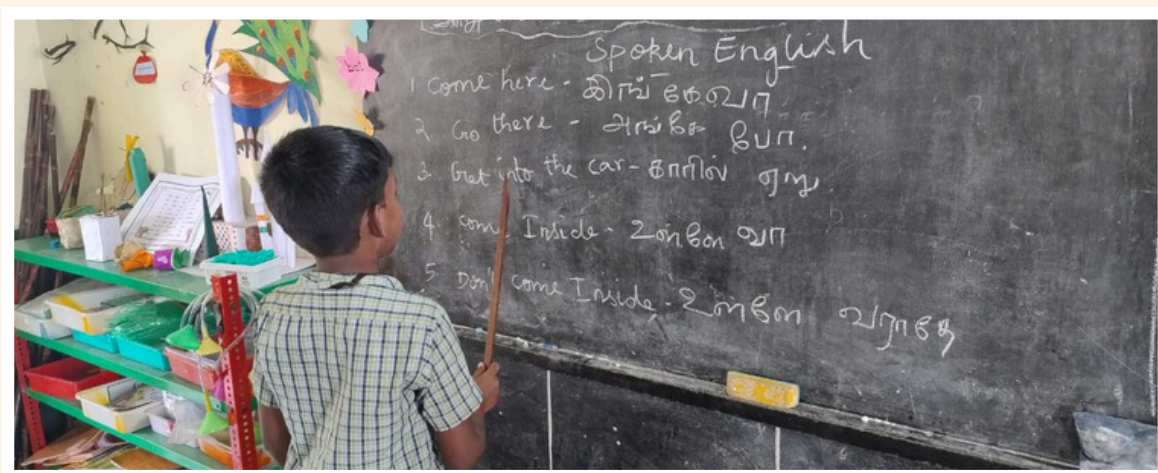 Spoken English
1 Come here - இங்கேவா
2 Go there - அங்கே போ.
3. Get into the car - காரில் ஏறு
4. Come Inside - உள்ளே வா
5. Don't come Inside - உள்ளே வராதே